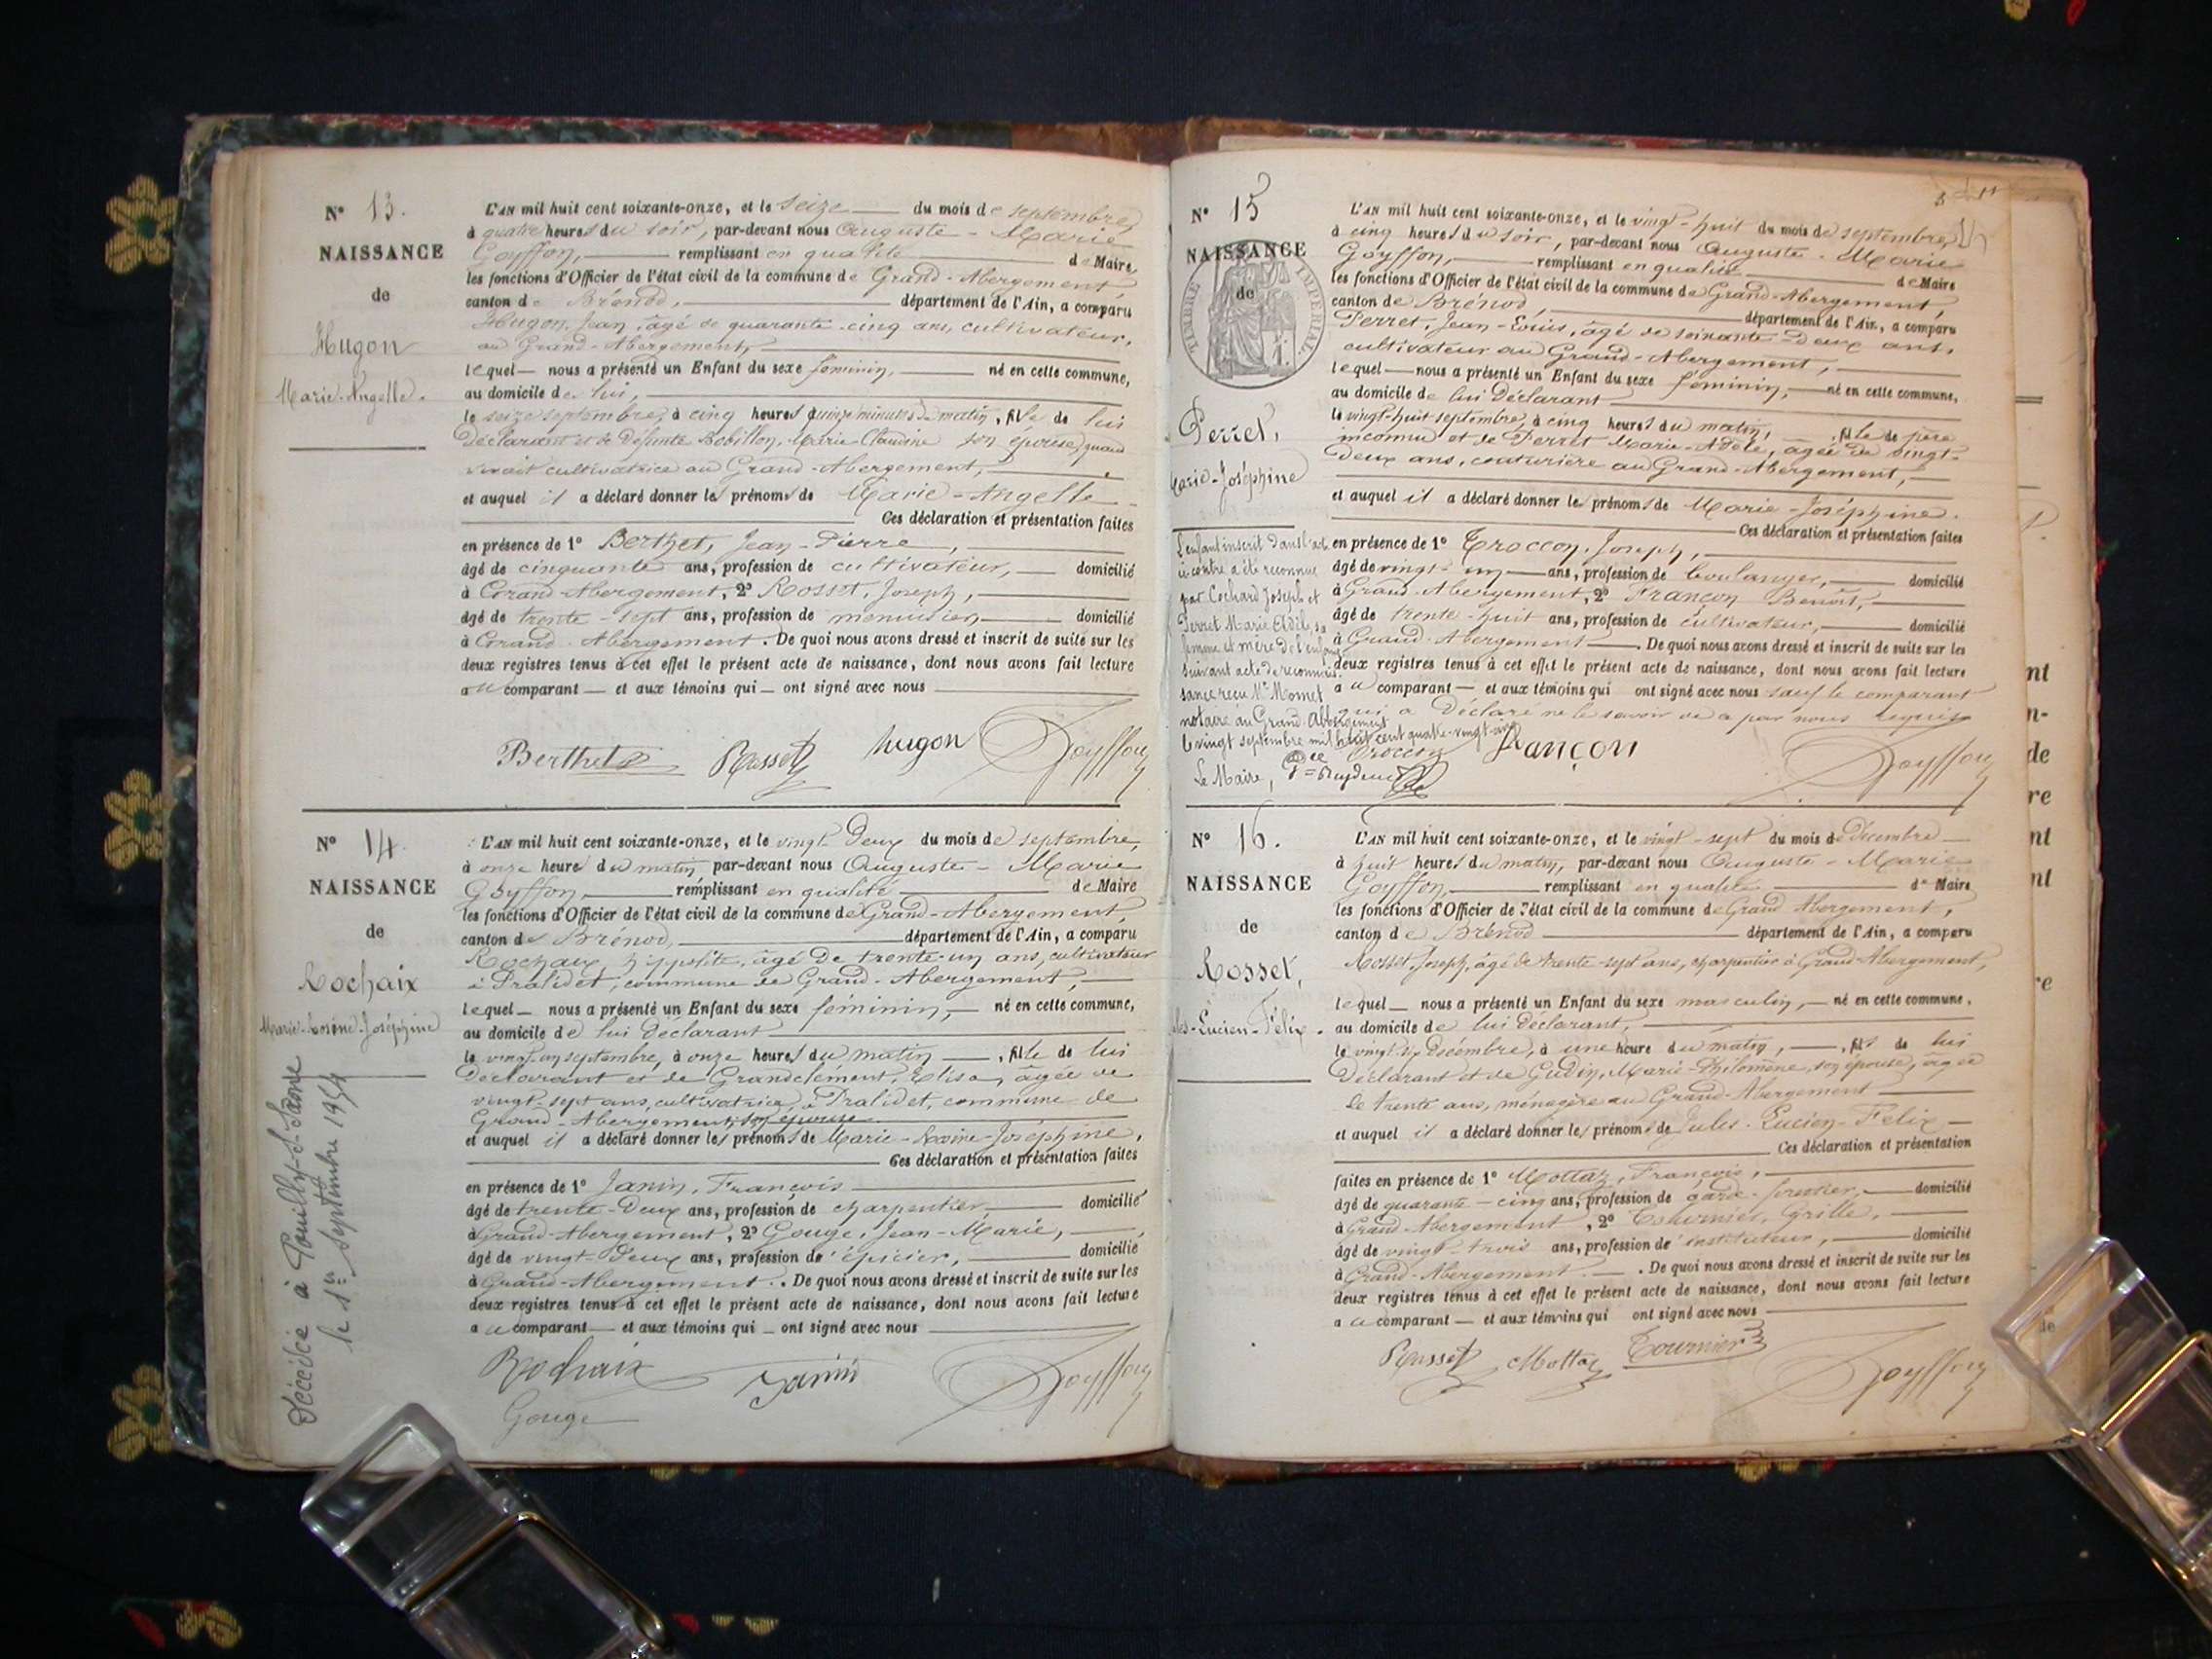 N° 13.
NAISSANCE
de
Hugon
Marie-Angelle.
L'AN mil huit cent soixante-onze, et le seize du mois de septembre,
à quatre heures du soir, par-devant nous Auguste-Marie
Goyffon, remplissant en qualité de Maire,
les fonctions d'Officier de l'état civil de la commune de Grand-Abergement,
canton de Brénod, département de l'Ain, a comparu
Hugon, Jean, âgé de quarante-cinq ans, cultivateur,
au Grand-Abergement,
lequel nous a présenté un Enfant du sexe féminin, né en cette commune,
au domicile de lui,
le seize septembre, à cinq heures quinze minutes du matin, fille de lui
déclarant et de défunte Bobillon, Marie Claudine son épouse, quand
vivait cultivatrice au Grand-Abergement,
et auquel il a déclaré donner les prénoms de Marie-Angelle
Ces déclaration et présentation faites
en présence de 1° Berthet, Jean-Pierre,
âgé de cinquante ans, profession de cultivateur, domicilié
à Grand-Abergement, 2° Rosset, Joseph,
âgé de trente-sept ans, profession de menuisier domicilié
à Grand-Abergement. De quoi nous avons dressé et inscrit de suite sur les
deux registres tenus à cet effet le présent acte de naissance, dont nous avons fait lecture
au comparant et aux témoins qui ont signé avec nous
Berthet Rosset hugon Goyffon
N° 14.
NAISSANCE
de
Rochaix
Marie-Josephine
Décédée à Pouilly-s-Saône
le 1er septembre 1954
L'AN mil huit cent soixante-onze, et le vingt-deux du mois de septembre,
à onze heures du matin, par-devant nous Auguste-Marie
Goyffon, remplissant en qualité de Maire
les fonctions d'Officier de l'état civil de la commune de Grand-Abergement,
canton de Brénod, département de l'Ain, a comparu
Rochaix, hippolite, âgé de trente-un ans, cultivateur
à Pralidet, commune de Grand-Abergement,
lequel nous a présenté un Enfant du sexe féminin, né en cette commune,
au domicile de lui déclarant
le vingt-un septembre, à onze heures du matin, fille de lui
déclarant et de Grandclément, Elisa, âgée de
vingt-sept ans, cultivatrice, à Pralidet, commune de
Grand-Abergement, son épouse
et auquel il a déclaré donner les prénoms de Marie-Josephine,
Ces déclaration et présentation faites
en présence de 1° Janin, François
âgé de trente-deux ans, profession de charpentier, domicilié
à Grand-Abergement, 2° Gouge, Jean-Marie,
âgé de vingt-deux ans, profession d'épicier, domicilié
à Grand-Abergement. De quoi nous avons dressé et inscrit de suite sur les
deux registres tenus à cet effet le présent acte de naissance, dont nous avons fait lecture
au comparant et aux témoins qui ont signé avec nous
Rochaix Janin Goyffon
Gouge
N° 15
NAISSANCE
de
TIMBRE IMPÉRIAL
Perret,
Marie-Joséphine
L'enfant inscrit dans l'acte
ci contre a été reconnue
par Cochard Joseph et
Perret Marie Adèle, sa
femme et mère de l'enfant
suivant acte de reconnais-
sance reçu Me Momet
notaire au Grand Abbergement
le vingt septembre mil huit cent quatre-vingt
Le Maire,
L'AN mil huit cent soixante-onze, et le vingt-huit du mois de septembre,
à cinq heures du soir, par-devant nous Auguste-Marie
Goyffon, remplissant en qualité de Maire
les fonctions d'Officier de l'état civil de la commune de Grand-Abergement,
canton de Brénod, département de l'Ain, a comparu
Perret, Jean-Louis, âgé de soixante-deux ans,
cultivateur au Grand-Abergement,
lequel nous a présenté un Enfant du sexe féminin, né en cette commune,
au domicile de lui déclarant
le vingt-huit septembre, à cinq heures du matin, fille de père
inconnu et de Perret Marie-Adèle, âgée de vingt-
deux ans, couturière au Grand-Abergement,
et auquel il a déclaré donner les prénoms de Marie-Joséphine.
Ces déclaration et présentation faites
en présence de 1° Troccon, Joseph,
âgé de vingt-un ans, profession de boulanger, domicilié
à Grand-Abergement, 2° Françon Benoît,
âgé de trente-huit ans, profession de cultivateur, domicilié
à Grand-Abergement. De quoi nous avons dressé et inscrit de suite sur les
deux registres tenus à cet effet le présent acte de naissance, dont nous avons fait lecture
au comparant et aux témoins qui ont signé avec nous sauf le comparant
qui a déclaré ne le savoir de ce par nous requis
Troccon françon Goyffon
N° 16.
NAISSANCE
de
Rosset,
Jules-Lucien-Félix.
L'AN mil huit cent soixante-onze, et le vingt-sept du mois de décembre
à huit heures du matin, par-devant nous Auguste-Marie
Goyffon, remplissant en qualité de Maire
les fonctions d'Officier de l'état civil de la commune de Grand Abergement,
canton de Brénod département de l'Ain, a comparu
Rosset, Joseph, âgé de trente-sept ans, charpentier à Grand-Abergement,
lequel nous a présenté un Enfant du sexe masculin, né en cette commune,
au domicile de lui déclarant,
le vingt-six décembre, à une heure du matin, fils de lui
déclarant et de Gudin, Marie-Philomène, son épouse, âgée
de trente ans, ménagère au Grand-Abergement
et auquel il a déclaré donner les prénoms de Jules-Lucien-Félix
Ces déclaration et présentation
faites en présence de 1° Mottaz, François,
âgé de quarante-cinq ans, profession de garde-forestier, domicilié
à Grand-Abergement, 2° Tournier,
âgé de vingt-trois ans, profession d'instituteur, domicilié
à Grand-Abergement. De quoi nous avons dressé et inscrit de suite sur les
deux registres tenus à cet effet le présent acte de naissance, dont nous avons fait lecture
au comparant et aux témoins qui ont signé avec nous
Rosset Mottaz Tournier Goyffon